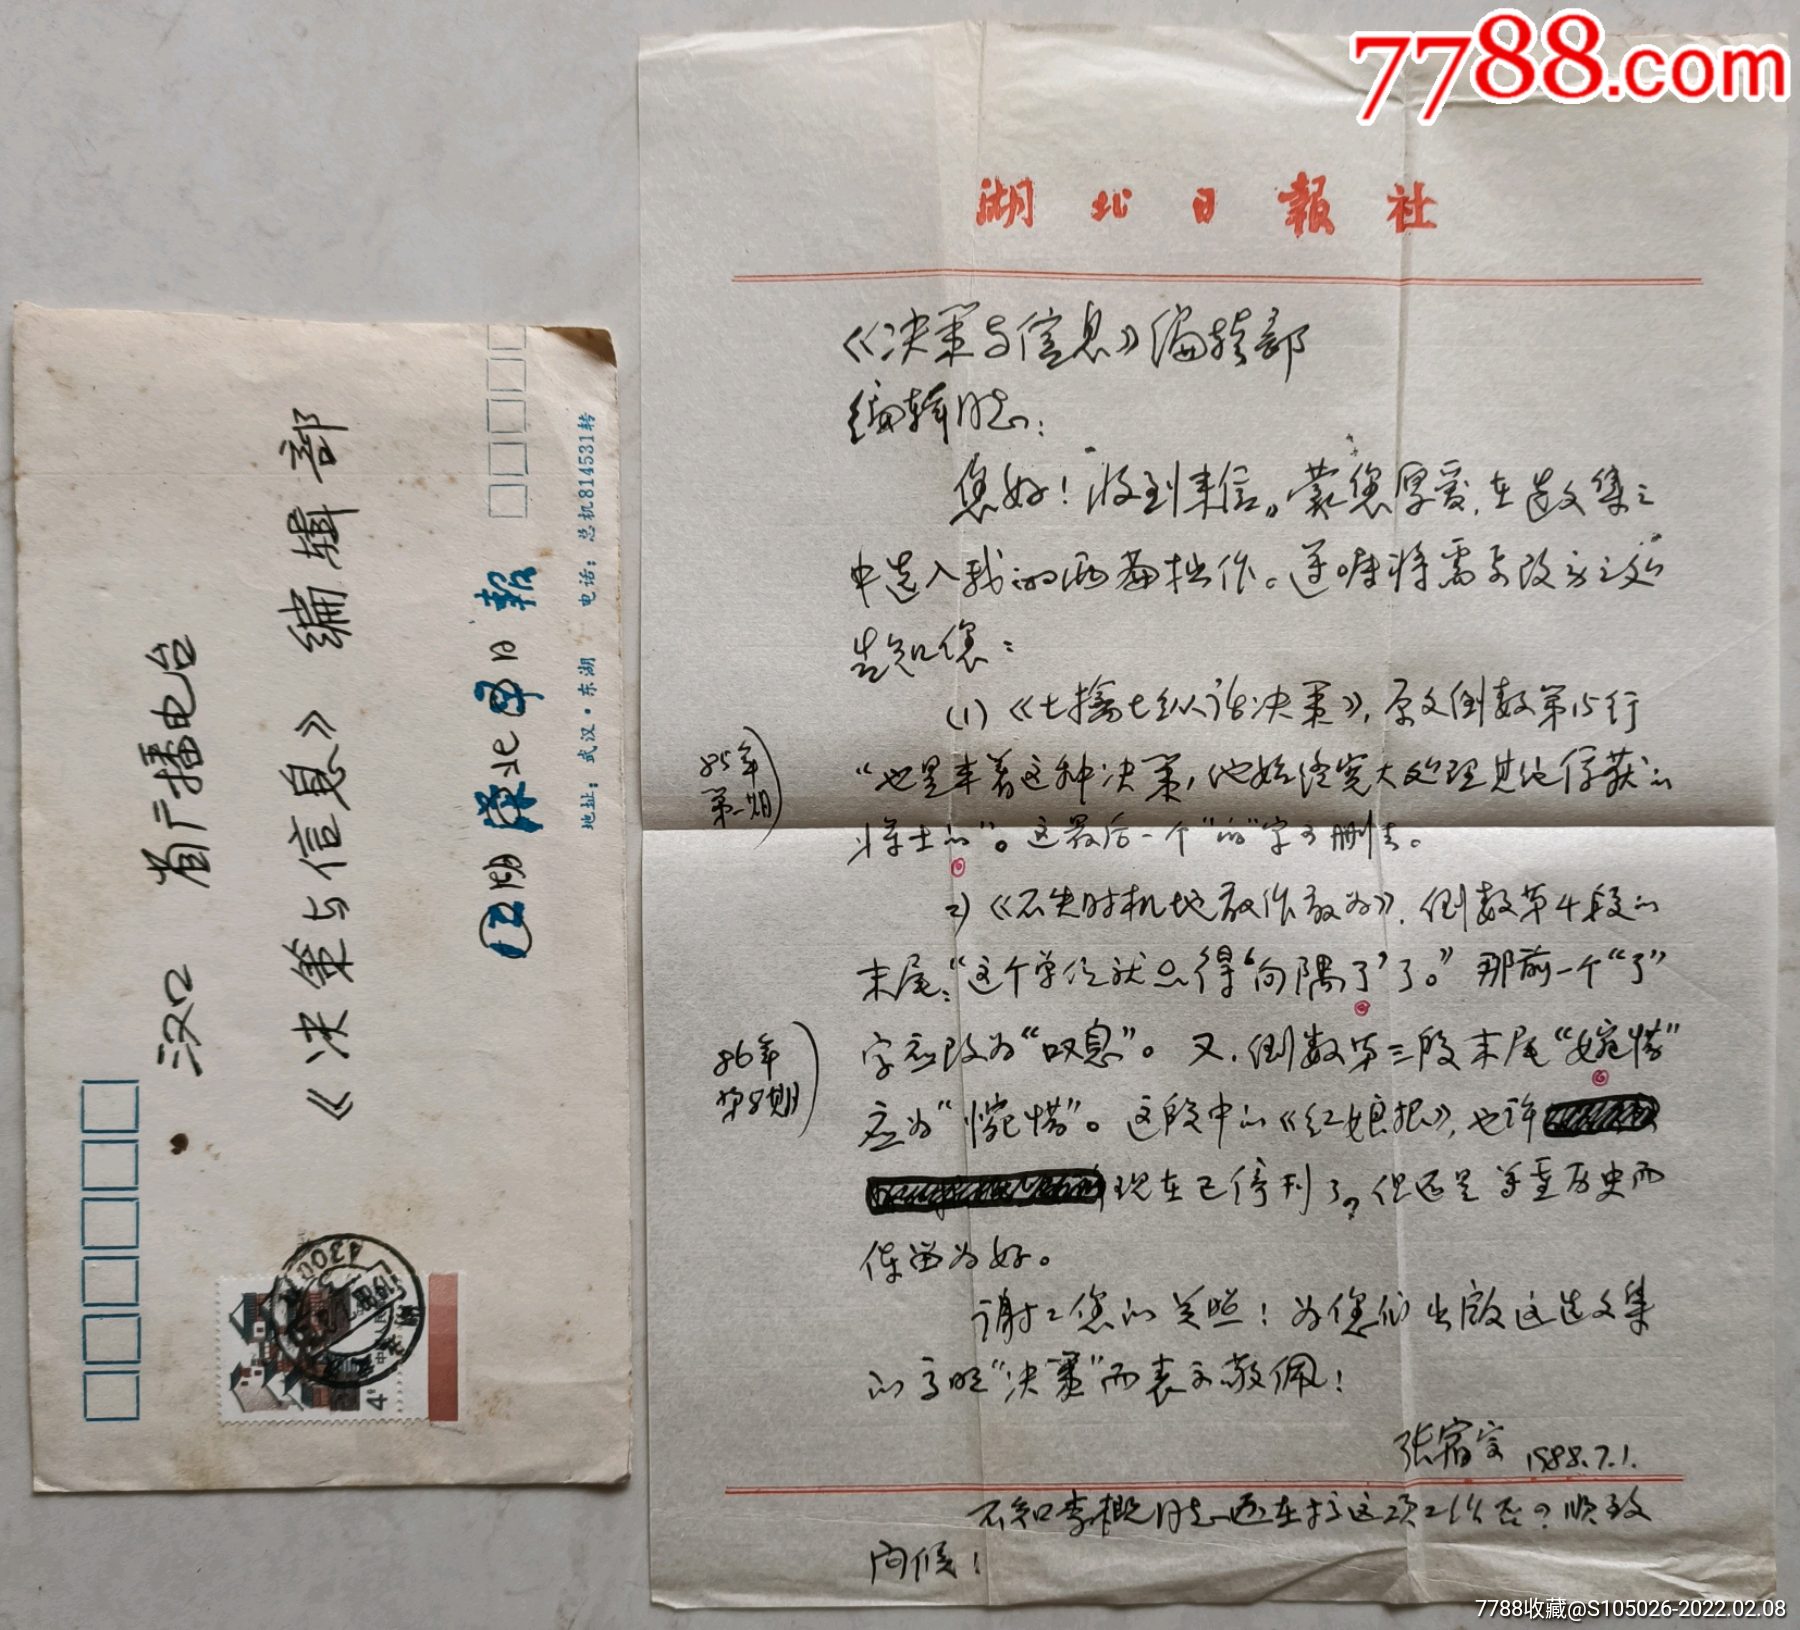 7788.com
湖北日報社
《决策与信息》编辑部
编辑同志：
您好！收到来信。蒙您厚爱，在选文集之
中选入我的两篇拙作。遵嘱将需要改动之处
告知您：
(1)《七擒七纵话决策》，原文倒数第15行
“也是本着这种决策，他始终宽大处理其他俘获的
将士的”。这最后一个“的”字可删去。
85年
第一期
2)《不失时机地敢作敢为》，倒数第4段的
末尾：“这个单位就只得‘向隅了’了。”那前一个“了”
字应改为“叹息”。又，倒数第三段末尾“婉惜”
应为“惋惜”。这段中的《红娘报》，也许
现在已停刊了，但还是尊重历史而
保留为好。
86年
第8期
谢谢您的关照！为您们出版这选文集
的高明“决策”而表示敬佩！
1988.7.1.
不知李概同志还在抓这项工作否？顺致
问候！
汉口 省广播电台
《决策与信息》编辑部
湖北日報
地址：武汉·东湖 电话：总机814531转
4分
7788收藏@S105026-2022.02.08